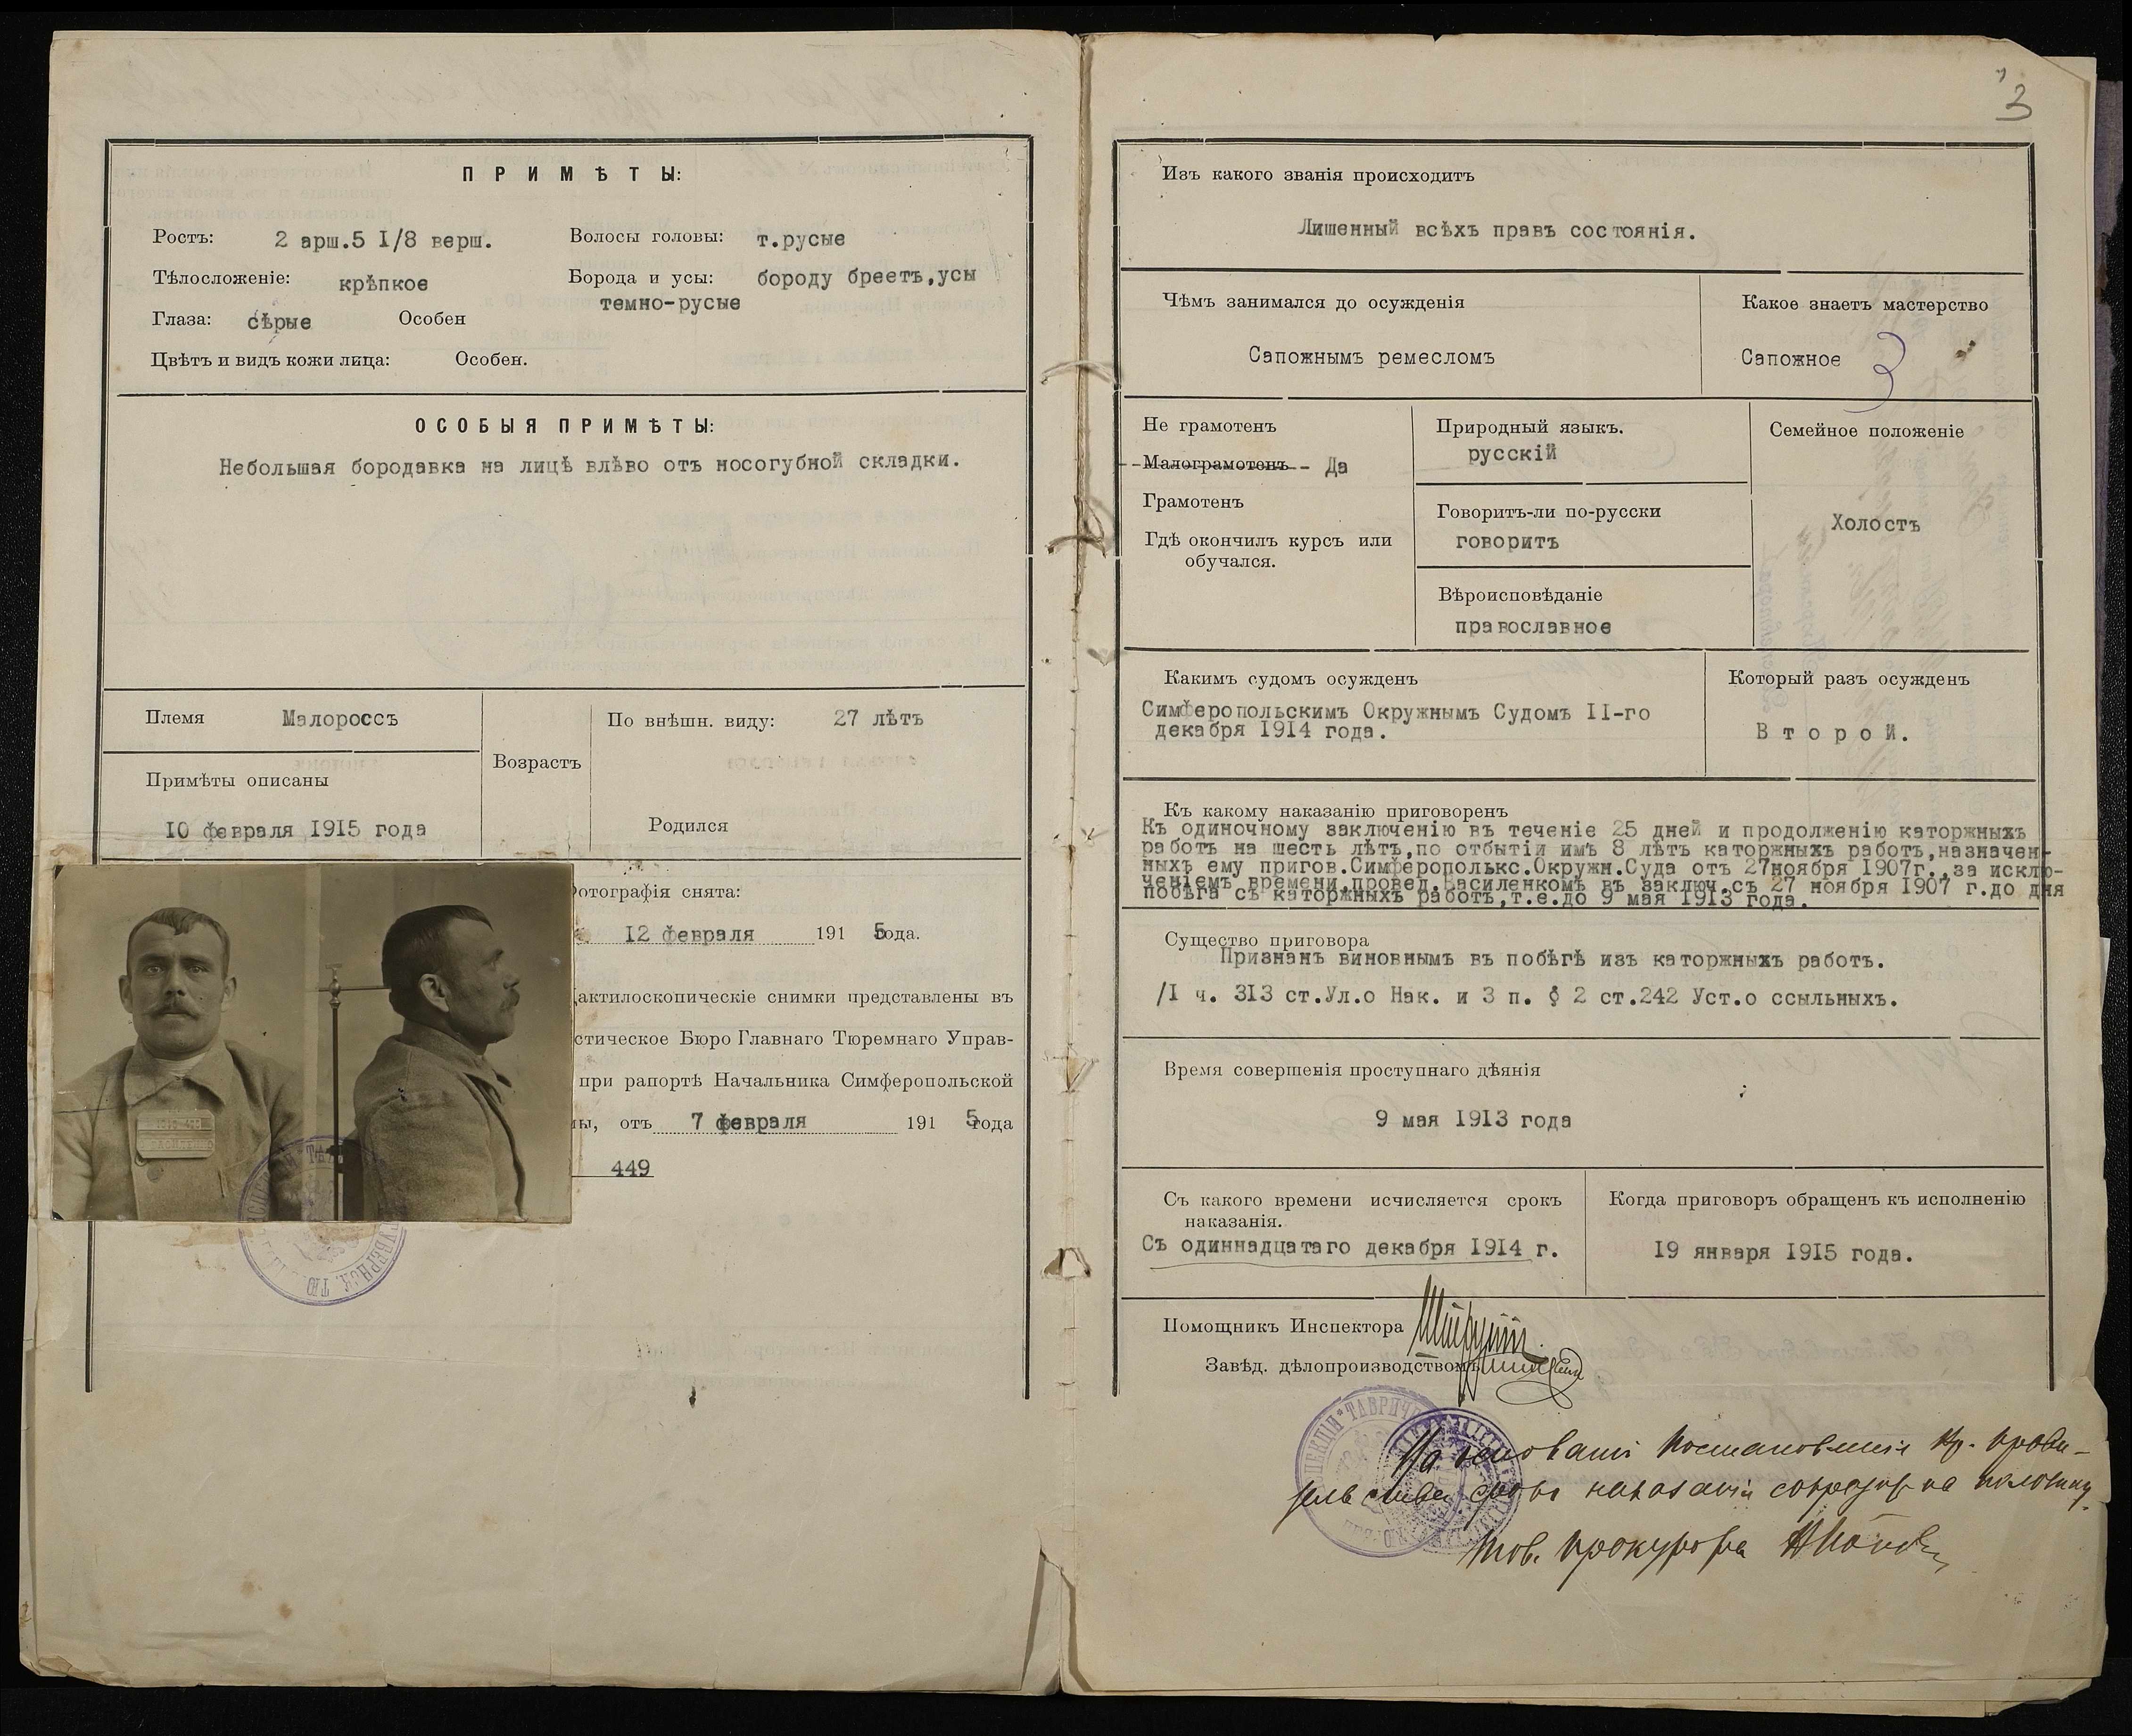 3
П Р И М Ѣ Т Ы:
Ростъ: 2 арш.5 I/8 верш. Волосы головы: т.русые
Тѣлосложеніе: крѣпкое Борода и усы: бороду бреетъ,усы
темно-русые
Глаза: сѣрые Особен
Цвѣтъ и видъ кожи лица: Особен.
ОСОБЫЯ ПРИМѢТЫ:
Небольшая бородавка на лицѣ влѣво отъ носогубной складки.
Племя Малороссъ
Примѣты описаны
IO февраля I9I5 года
Возрастъ
По внѣшн. виду: 27 лѣтъ
Родился
Фотографія снята:
I2 февраля 191 5 года.
дактилоскопическіе снимки представлены въ
стическое Бюро Главнаго Тюремнаго Управ-
при рапортѣ Начальника Симферопольской
ы, отъ 7 февраля 191 5 года
449
Изъ какого званія происходитъ
Лишенный всѣхъ правъ состоянія.
Чѣмъ занимался до осужденія
Сапожнымъ ремесломъ
Какое знаетъ мастерство
Сапожное
Не грамотенъ
Малограмотенъ - Да
Грамотенъ
Гдѣ окончилъ курсъ или
обучался.
Природный языкъ.
русскій
Говоритъ-ли по-русски
говоритъ
Вѣроисповѣданіе
православное
Семейное положеніе
Холостъ
Какимъ судомъ осужденъ
Симферопольскимъ Окружнымъ Судомъ II-го
декабря I9I4 года.
Который разъ осужденъ
В т о р о й.
Къ какому наказанію приговоренъ
Къ одиночному заключенію въ теченіе 25 дней и продолженію каторжныхъ
работъ на шесть лѣтъ,по отбытіи имъ 8 лѣтъ каторжныхъ работъ,назначен-
ныхъ ему пригов.Симферополькс.Окружн.Суда отъ 27ноября I907г.,за исклю-
ченіемъ времени,провед.Василенкомъ въ заключ.съ 27 ноября I907 г.до дня
побѣга съ каторжныхъ работъ,т.е.до 9 мая I9I3 года.
Существо приговора
Признанъ виновнымъ въ побѣгѣ изъ каторжныхъ работъ.
/I ч. 3I3 ст.Ул.о Нак. и 3 п. § 2 ст.242 Уст.о ссыльныхъ.
Время совершенія проступнаго дѣянія
9 мая I9I3 года
Съ какого времени исчисляется срокъ
наказанія.
Съ одиннадцатаго декабря I9I4 г.
Когда приговоръ обращенъ къ исполненію
I9 января I9I5 года.
Помощникъ Инспектора
Завѣд. дѣлопроизводствомъ
На основаніи Постановленія Вр. Прави-
тельства срокъ наказанія сокращенъ на половину.
Тов. Прокурора